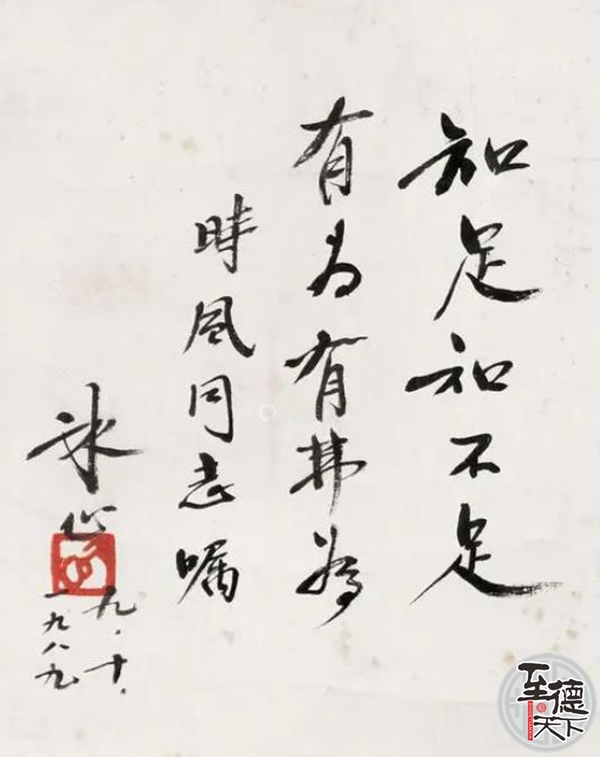 知足知不足
有为有弗為
時風同志嘱
冰心
九.十.
一九八九
至德天下